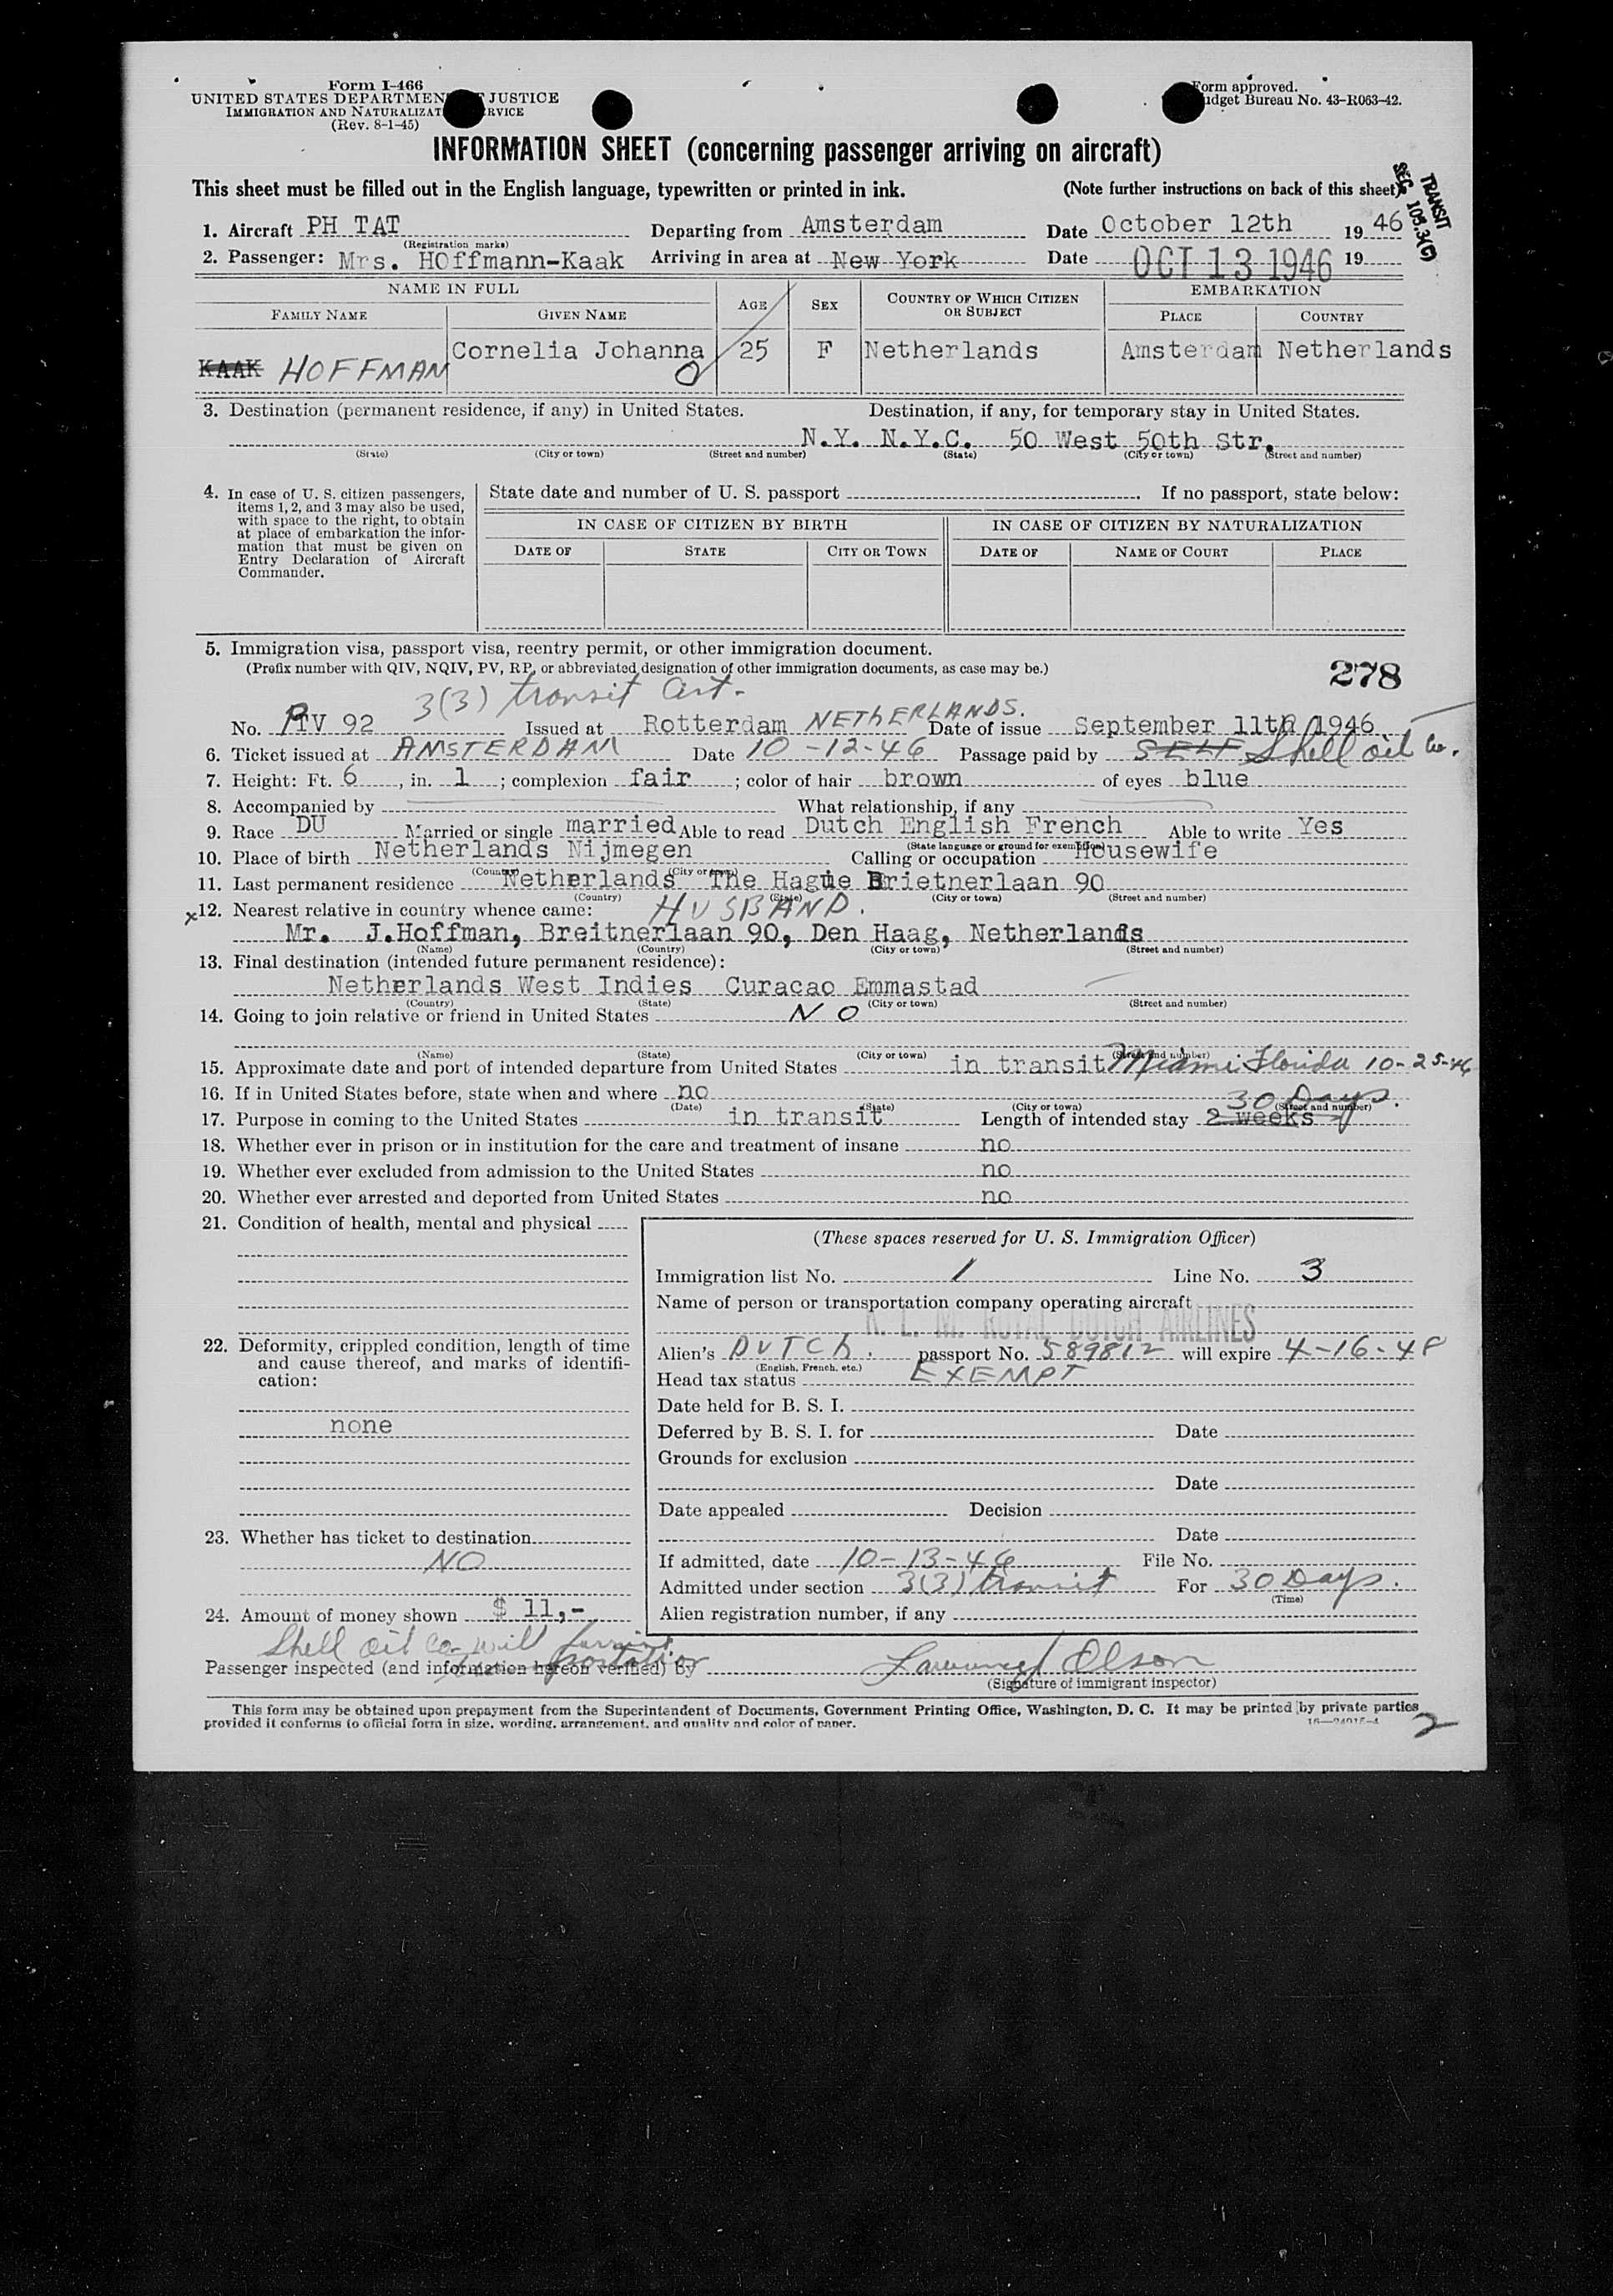 Form I-466
UNITED STATES DEPARTMENT JUSTICE
IMMIGRATION AND NATURALIZAT RVICE
(Rev. 8-1-45)
Form approved.
udget Bureau No. 43-R063-42.
INFORMATION SHEET (concerning passenger arriving on aircraft)
This sheet must be filled out in the English language, typewritten or printed in ink. (Note further instructions on back of this sheet)
TRANSIT
SEC 105.3(C)
1. Aircraft PH TAT Departing from Amsterdam Date October 12th 19 46
(Registration marks)
2. Passenger: Mrs. HOffmann-Kaak Arriving in area at New York Date OCT 13 1946 19
NAME IN FULL AGE SEX COUNTRY OF WHICH CITIZEN OR SUBJECT EMBARKATION
FAMILY NAME GIVEN NAME PLACE COUNTRY
KAAK HOFFMAN Cornelia Johanna 25 F Netherlands Amsterdam Netherlands
3. Destination (permanent residence, if any) in United States. Destination, if any, for temporary stay in United States.
N.Y. N.Y.C. 50 West 50th Str.
(State) (City or town) (Street and number) (State) (City or town) (Street and number)
4. In case of U. S. citizen passengers, items 1, 2, and 3 may also be used, with space to the right, to obtain at place of embarkation the information that must be given on Entry Declaration of Aircraft Commander.
State date and number of U. S. passport . If no passport, state below:
IN CASE OF CITIZEN BY BIRTH IN CASE OF CITIZEN BY NATURALIZATION
DATE OF STATE CITY OR TOWN DATE OF NAME OF COURT PLACE
5. Immigration visa, passport visa, reentry permit, or other immigration document.
(Prefix number with QIV, NQIV, PV, RP, or abbreviated designation of other immigration documents, as case may be.)
278
3(3) transit Cert.
No. PTV 92 Issued at Rotterdam NETHERLANDS. Date of issue September 11th 1946
6. Ticket issued at AMSTERDAM Date 10-12-46 Passage paid by SELF Shell oil Co.
7. Height: Ft. 6, in. 1; complexion fair; color of hair brown of eyes blue
8. Accompanied by What relationship, if any
9. Race DU Married or single married Able to read Dutch English French Able to write Yes
(State language or ground for exemption)
10. Place of birth Netherlands Nijmegen Calling or occupation Housewife
(Country) (City or town)
11. Last permanent residence Netherlands The Hague Brietnerlaan 90
(Country) (State) (City or town) (Street and number)
x12. Nearest relative in country whence came: HUSBAND.
Mr. J.Hoffman, Breitnerlaan 90, Den Haag, Netherlands
(Name) (Country) (City or town) (Street and number)
13. Final destination (intended future permanent residence):
Netherlands West Indies Curacao Emmastad
(Country) (State) (City or town) (Street and number)
14. Going to join relative or friend in United States NO
(Name) (State) (City or town) (Street and number)
15. Approximate date and port of intended departure from United States in transit Miami Florida 10-25-46
16. If in United States before, state when and where no
(Date) (State) (City or town) (Street and number)
30 Days.
17. Purpose in coming to the United States in transit Length of intended stay 2 weeks
18. Whether ever in prison or in institution for the care and treatment of insane no
19. Whether ever excluded from admission to the United States no
20. Whether ever arrested and deported from United States no
21. Condition of health, mental and physical
22. Deformity, crippled condition, length of time and cause thereof, and marks of identification:
none
23. Whether has ticket to destination
NO
24. Amount of money shown $ 11,-
Shell oil Co will furnish
(These spaces reserved for U. S. Immigration Officer)
Immigration list No. 1 Line No. 3
Name of person or transportation company operating aircraft
K. L. M. ROYAL DUTCH AIRLINES
Alien's DUTCH. passport No. 589812 will expire 4-16-48
(English, French, etc.)
Head tax status EXEMPT
Date held for B. S. I.
Deferred by B. S. I. for Date
Grounds for exclusion
Date
Date appealed Decision
Date
If admitted, date 10-13-46 File No.
Admitted under section 3(3) transit For 30 Days.
(Time)
Alien registration number, if any
Passenger inspected (and information hereon verified) by Lawrence Olson
(Signature of immigrant inspector)
This form may be obtained upon prepayment from the Superintendent of Documents, Government Printing Office, Washington, D. C. It may be printed by private parties
provided it conforms to official form in size, wording, arrangement, and quality and color of paper.
2